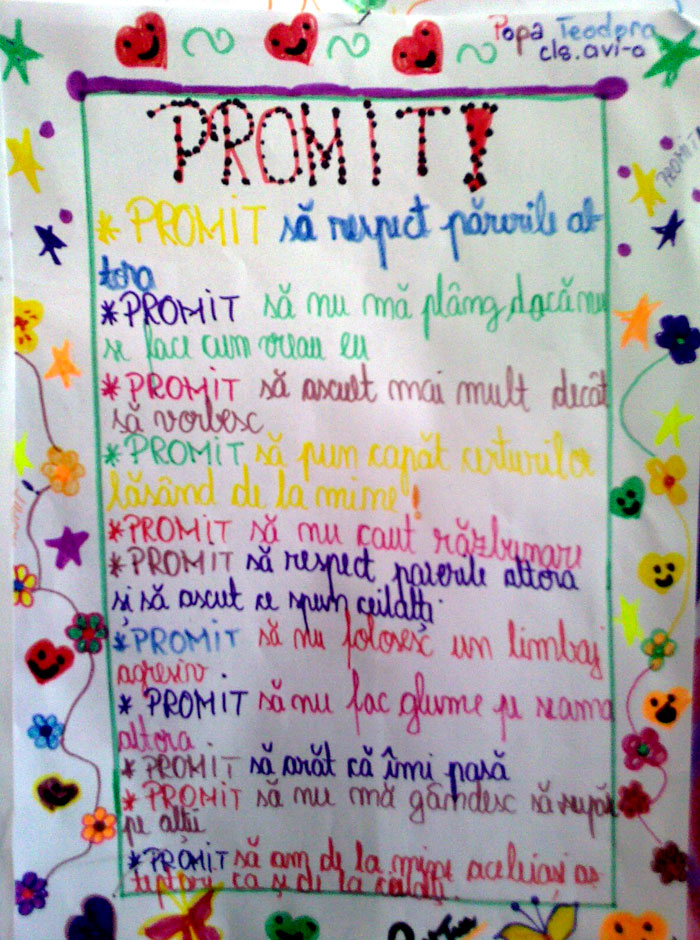 Popa Teodora
cls. a VI-a
PROMIT!
PROMIT
* PROMIT să respect părerile al-
tora
*PROMIT să nu mă plâng, dacă nu
se face cum vreau eu
*PROMIT să ascult mai mult decât
să vorbesc
*PROMIT să pun capăt certurilor
lăsând de la mine!
*PROMIT să nu caut răzbunare
*PROMIT să respect părerile altora
și să ascult ce spun ceilalți
*PROMIT să nu folosesc un limbaj
agresiv
* PROMIT să nu fac glume pe seama
altora
*PROMIT să arăt că îmi pasă
*PROMIT să nu mă gândesc să supăr
pe alții
*PROMIT să am de la mine aceleași aș-
teptări ca și de la ceilalți.